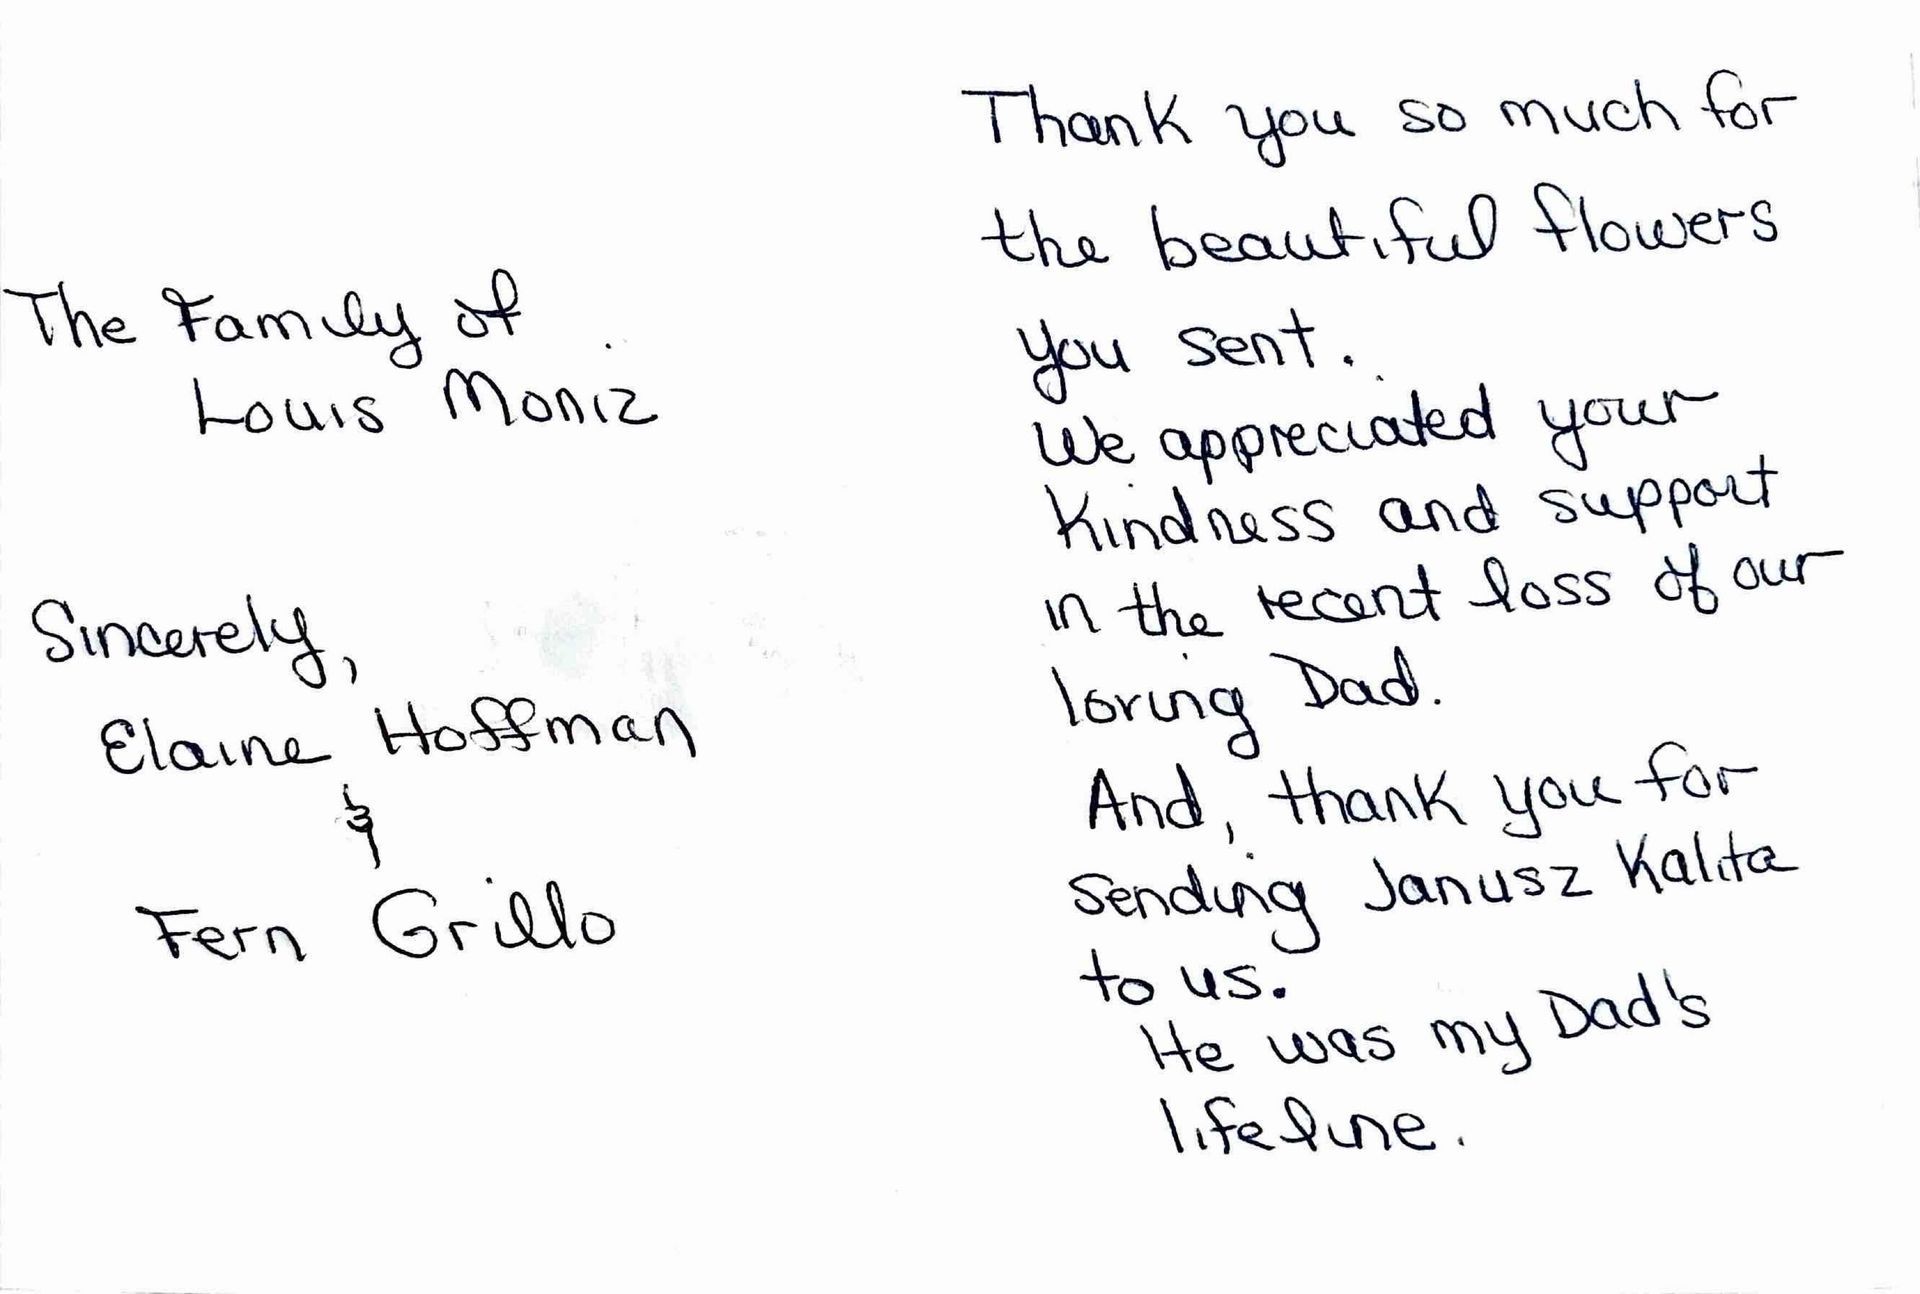 The Family of
Louis Moniz
Sincerely,
Elaine Hoffman
&
Fern Grillo
Thank you so much for
the beautiful flowers
you sent.
We appreciated your
Kindness and support
in the recent loss of our
loving Dad.
And, thank you for
sending Janusz Kalita
to us.
He was my Dad's
lifeline.